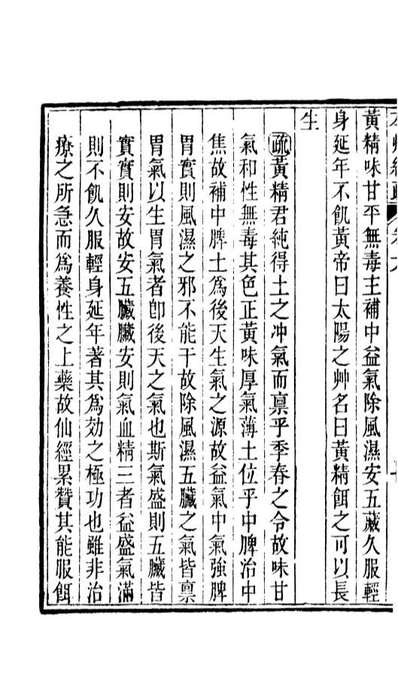 黃精味甘平無毒主補中益氣除風濕安五藏久服輕
身延年不飢黃帝曰太陽之艸名曰黃精餌之可以長
生
疏黃精君純得土之冲氣而稟乎季春之令故味甘
氣和性無毒其色正黃味厚氣薄土位乎中脾治中
焦故補中脾土爲後天生氣之源故益氣中氣強脾
胃實則風濕之邪不能干故除風濕五臟之氣皆稟
胃氣以生胃氣者卽後天之氣也斯氣盛則五臟皆
實實則安故安五臟臟安則氣血精三者益盛氣滿
則不飢久服輕身延年著其爲効之極功也雖非治
療之所急而爲養性之上藥故仙經累贊其能服餌